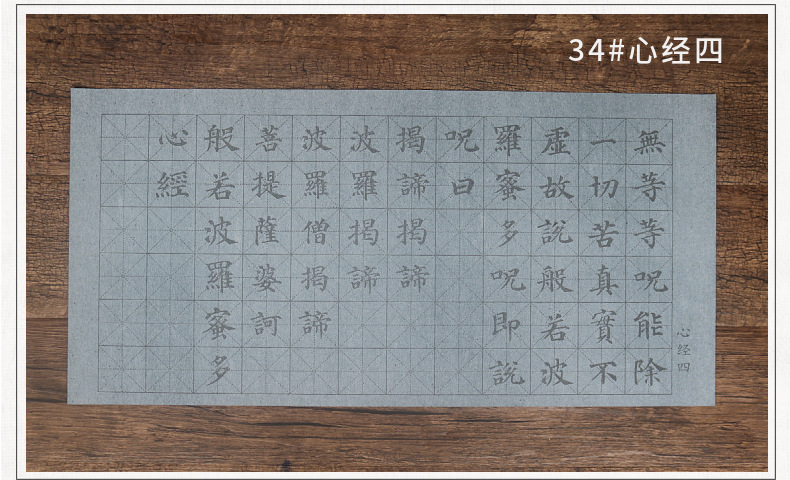 34#心经四
無等等呪能除
一切苦真實不
虛故說般若波
羅蜜多呪即說
呪曰
揭諦揭諦
波羅揭諦
波羅僧揭諦
菩提薩婆訶
般若波羅蜜多
心經
心经四